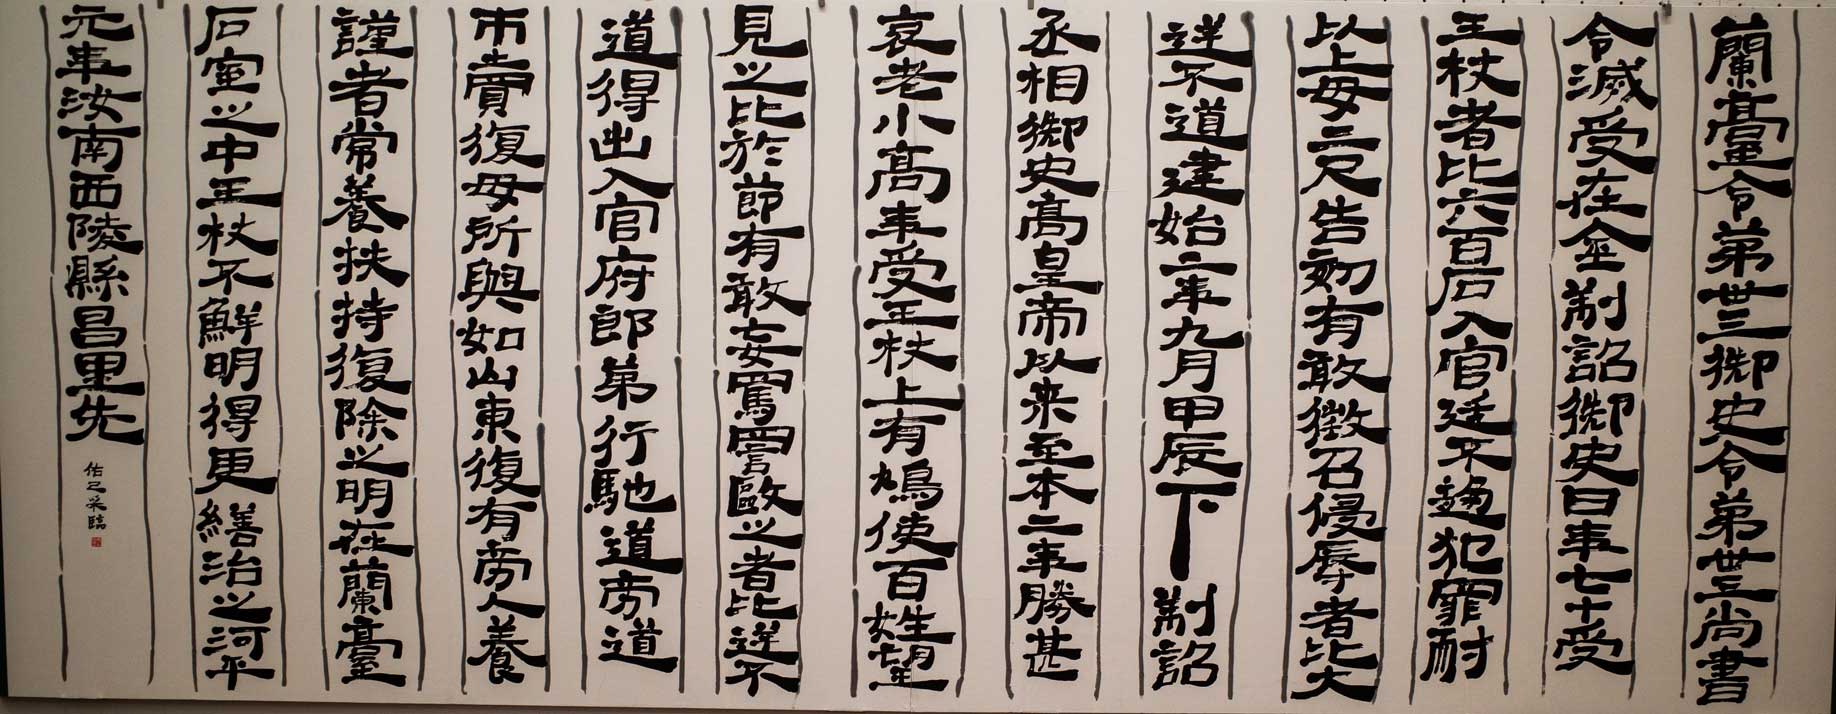 蘭臺令第卅三御史令第卌三尚書
令滅受在金制詔御史曰年七十受
王杖者比六百石入官廷不趨犯罪耐
以上毋二尺告劾有敢徵召侵辱者比大
逆不道建始二年九月甲辰下制詔
丞相御史高皇帝以来至本二年勝甚
哀老小高年受王杖上有鳩使百姓望
見之比於節有敢妄罵詈毆之者比逆不
道得出入官府郎第行馳道旁道
市賣復毋所與如山東復有旁人養
謹者常養扶持復除之明在蘭臺
石室之中王杖不鮮明得更繕治之河平
元年汝南西陵縣昌里先